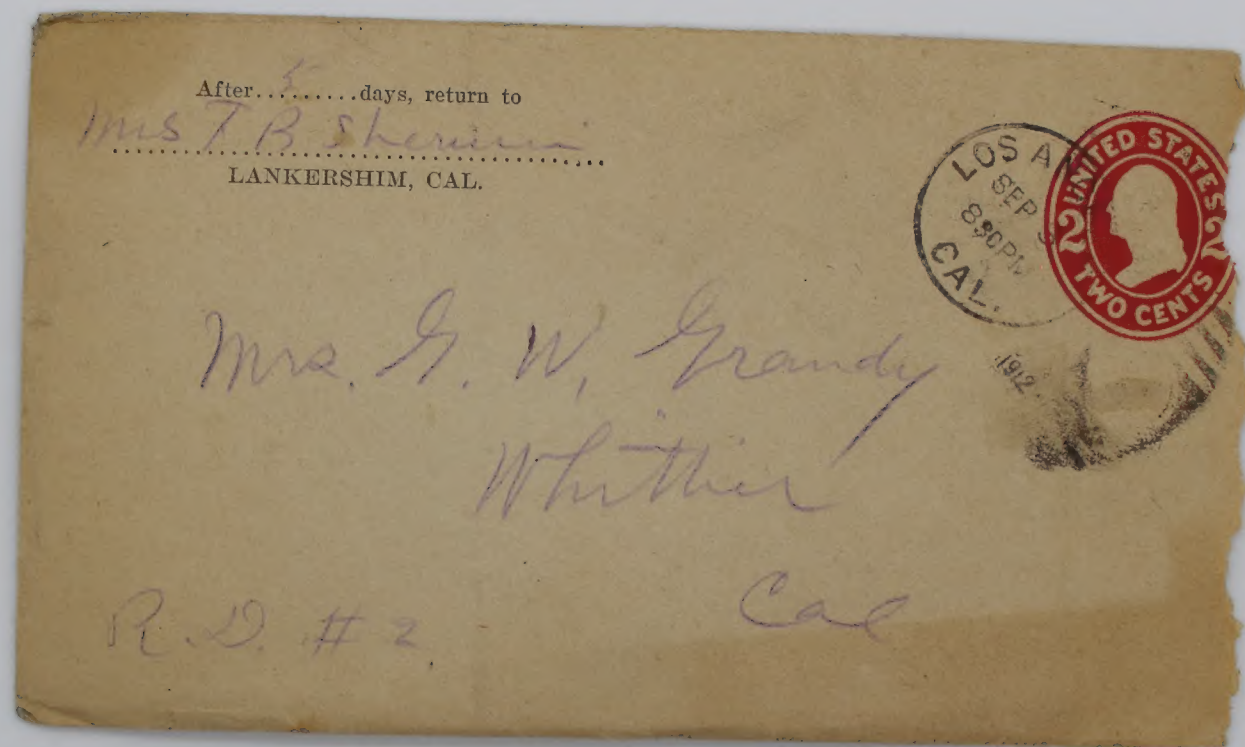 After 5 days, return to
Mrs T B
LANKERSHIM, CAL.
LOS AN
SEP
830PM
CAL.
1912
UNITED STATES
2 2
TWO CENTS
Mrs. G. W. Grandy
Whittier
Cal
R.D. #2